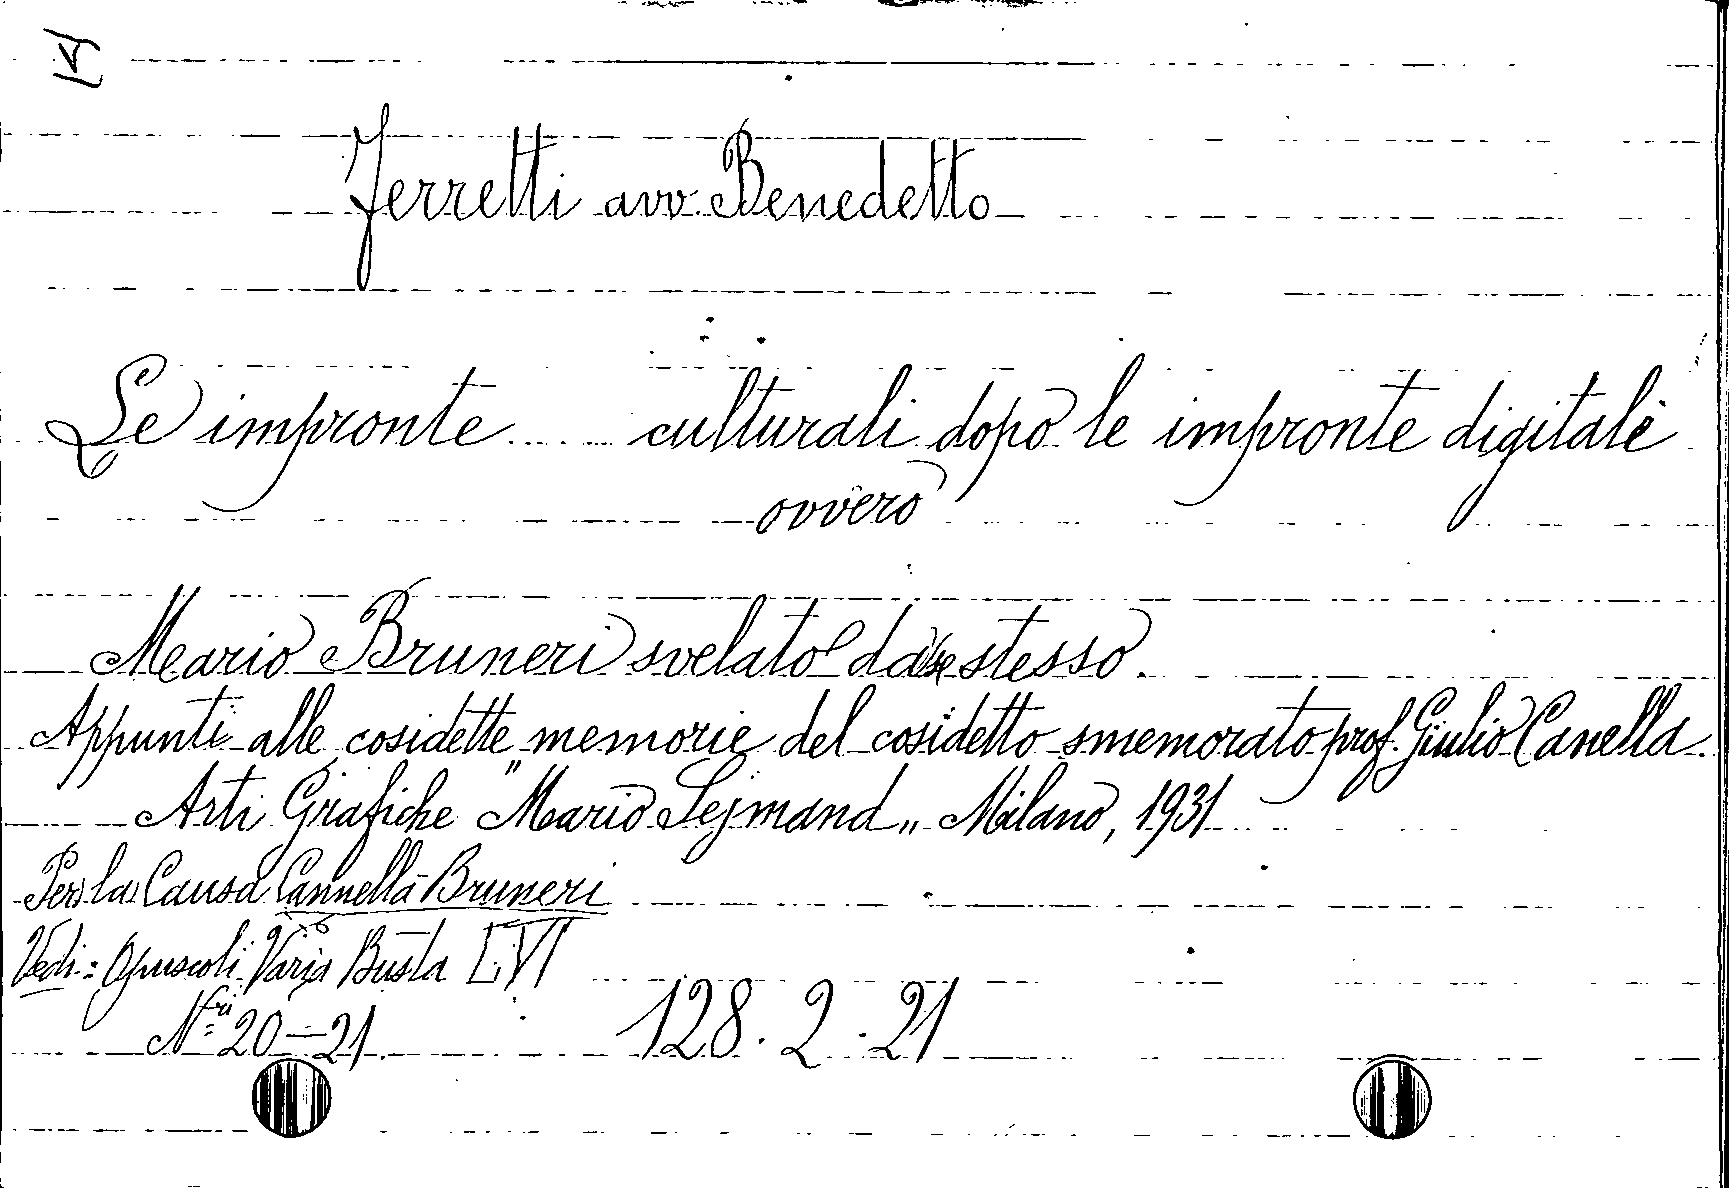 Ferretti avv. Benedetto
Le impronte .... culturali dopo le impronte digitali
ovvero
Mario Bruneri svelato da se stesso.
Appunti alle cosidette memorie del cosidetto smemorato prof. Giulio Canella.
Arti Grafiche "Mario Sejmand„ Milano, 1931
Per la Causa Cannella-Bruneri
Vedi: Opuscoli Varia Busta LVI
N.ri 20-21
128.2.21